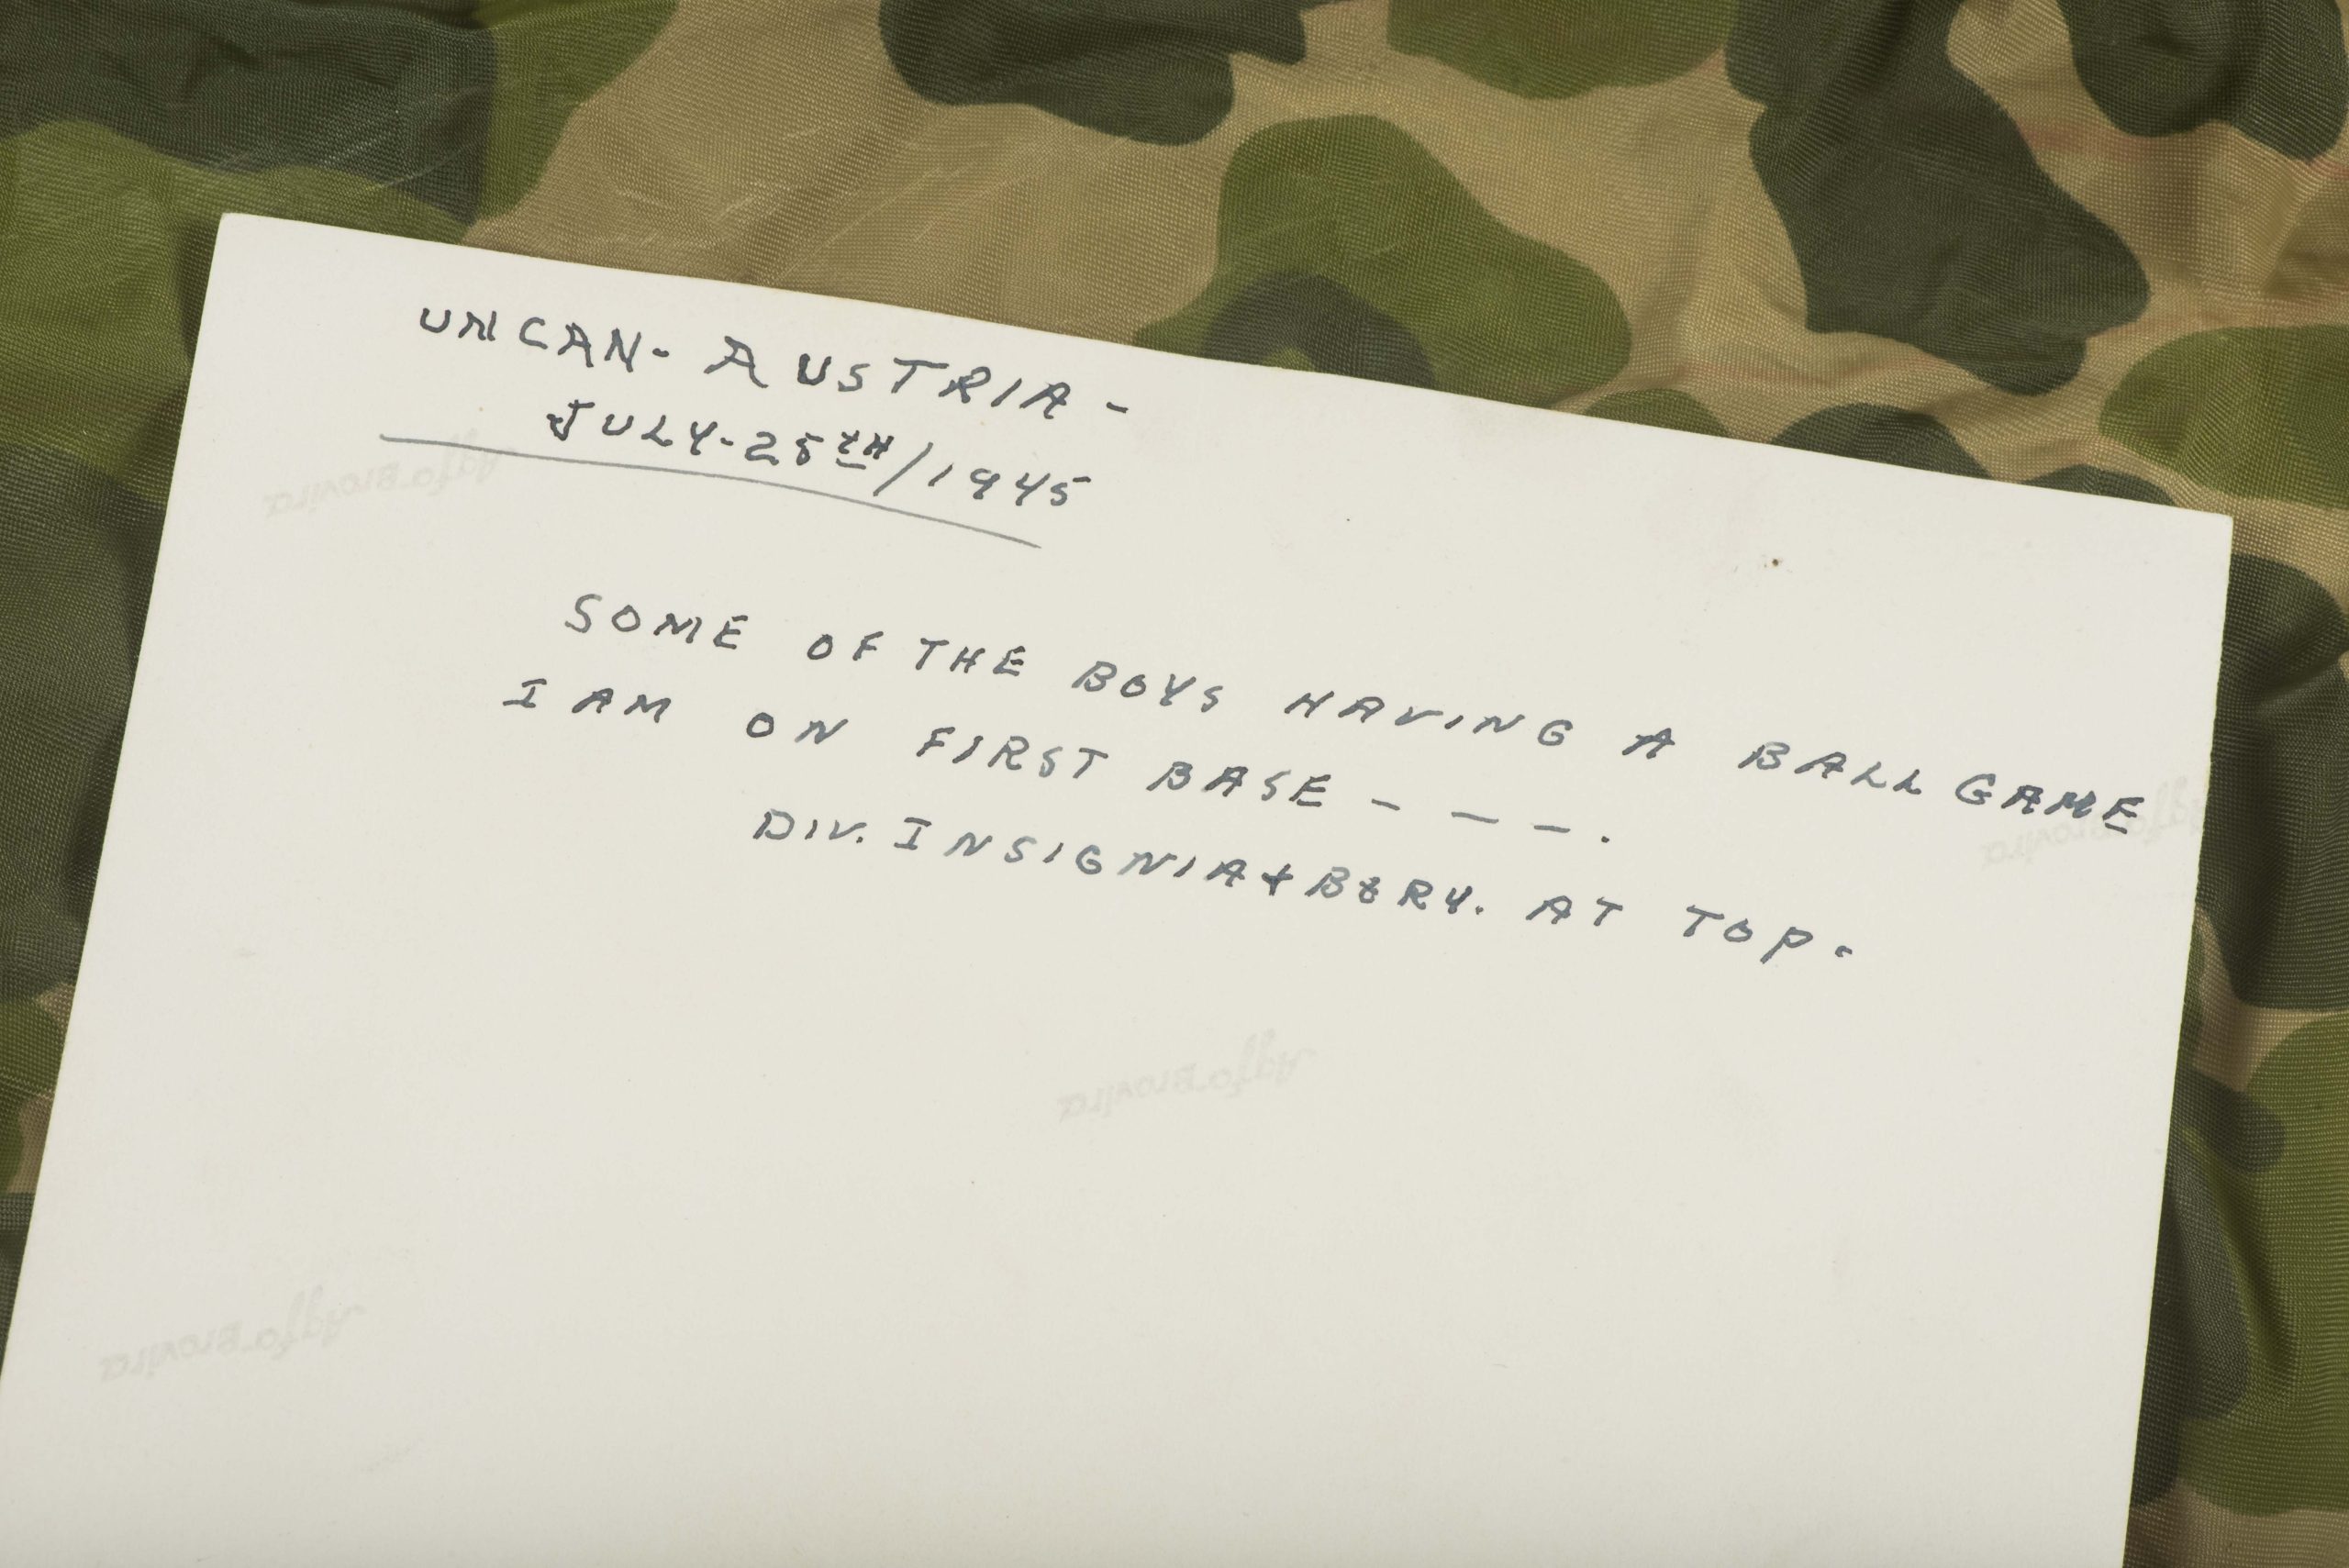 UNCAN- AUSTRIA -
JULY-25TH/1945
SOME OF THE BOYS HAVING A BALL GAME
I AM ON FIRST BASE - - - .
DIV. INSIGNIA & BTRY. AT TOP-
Agfa Brovira
Agfa Brovira
Agfa Brovira
Agfa Brovira